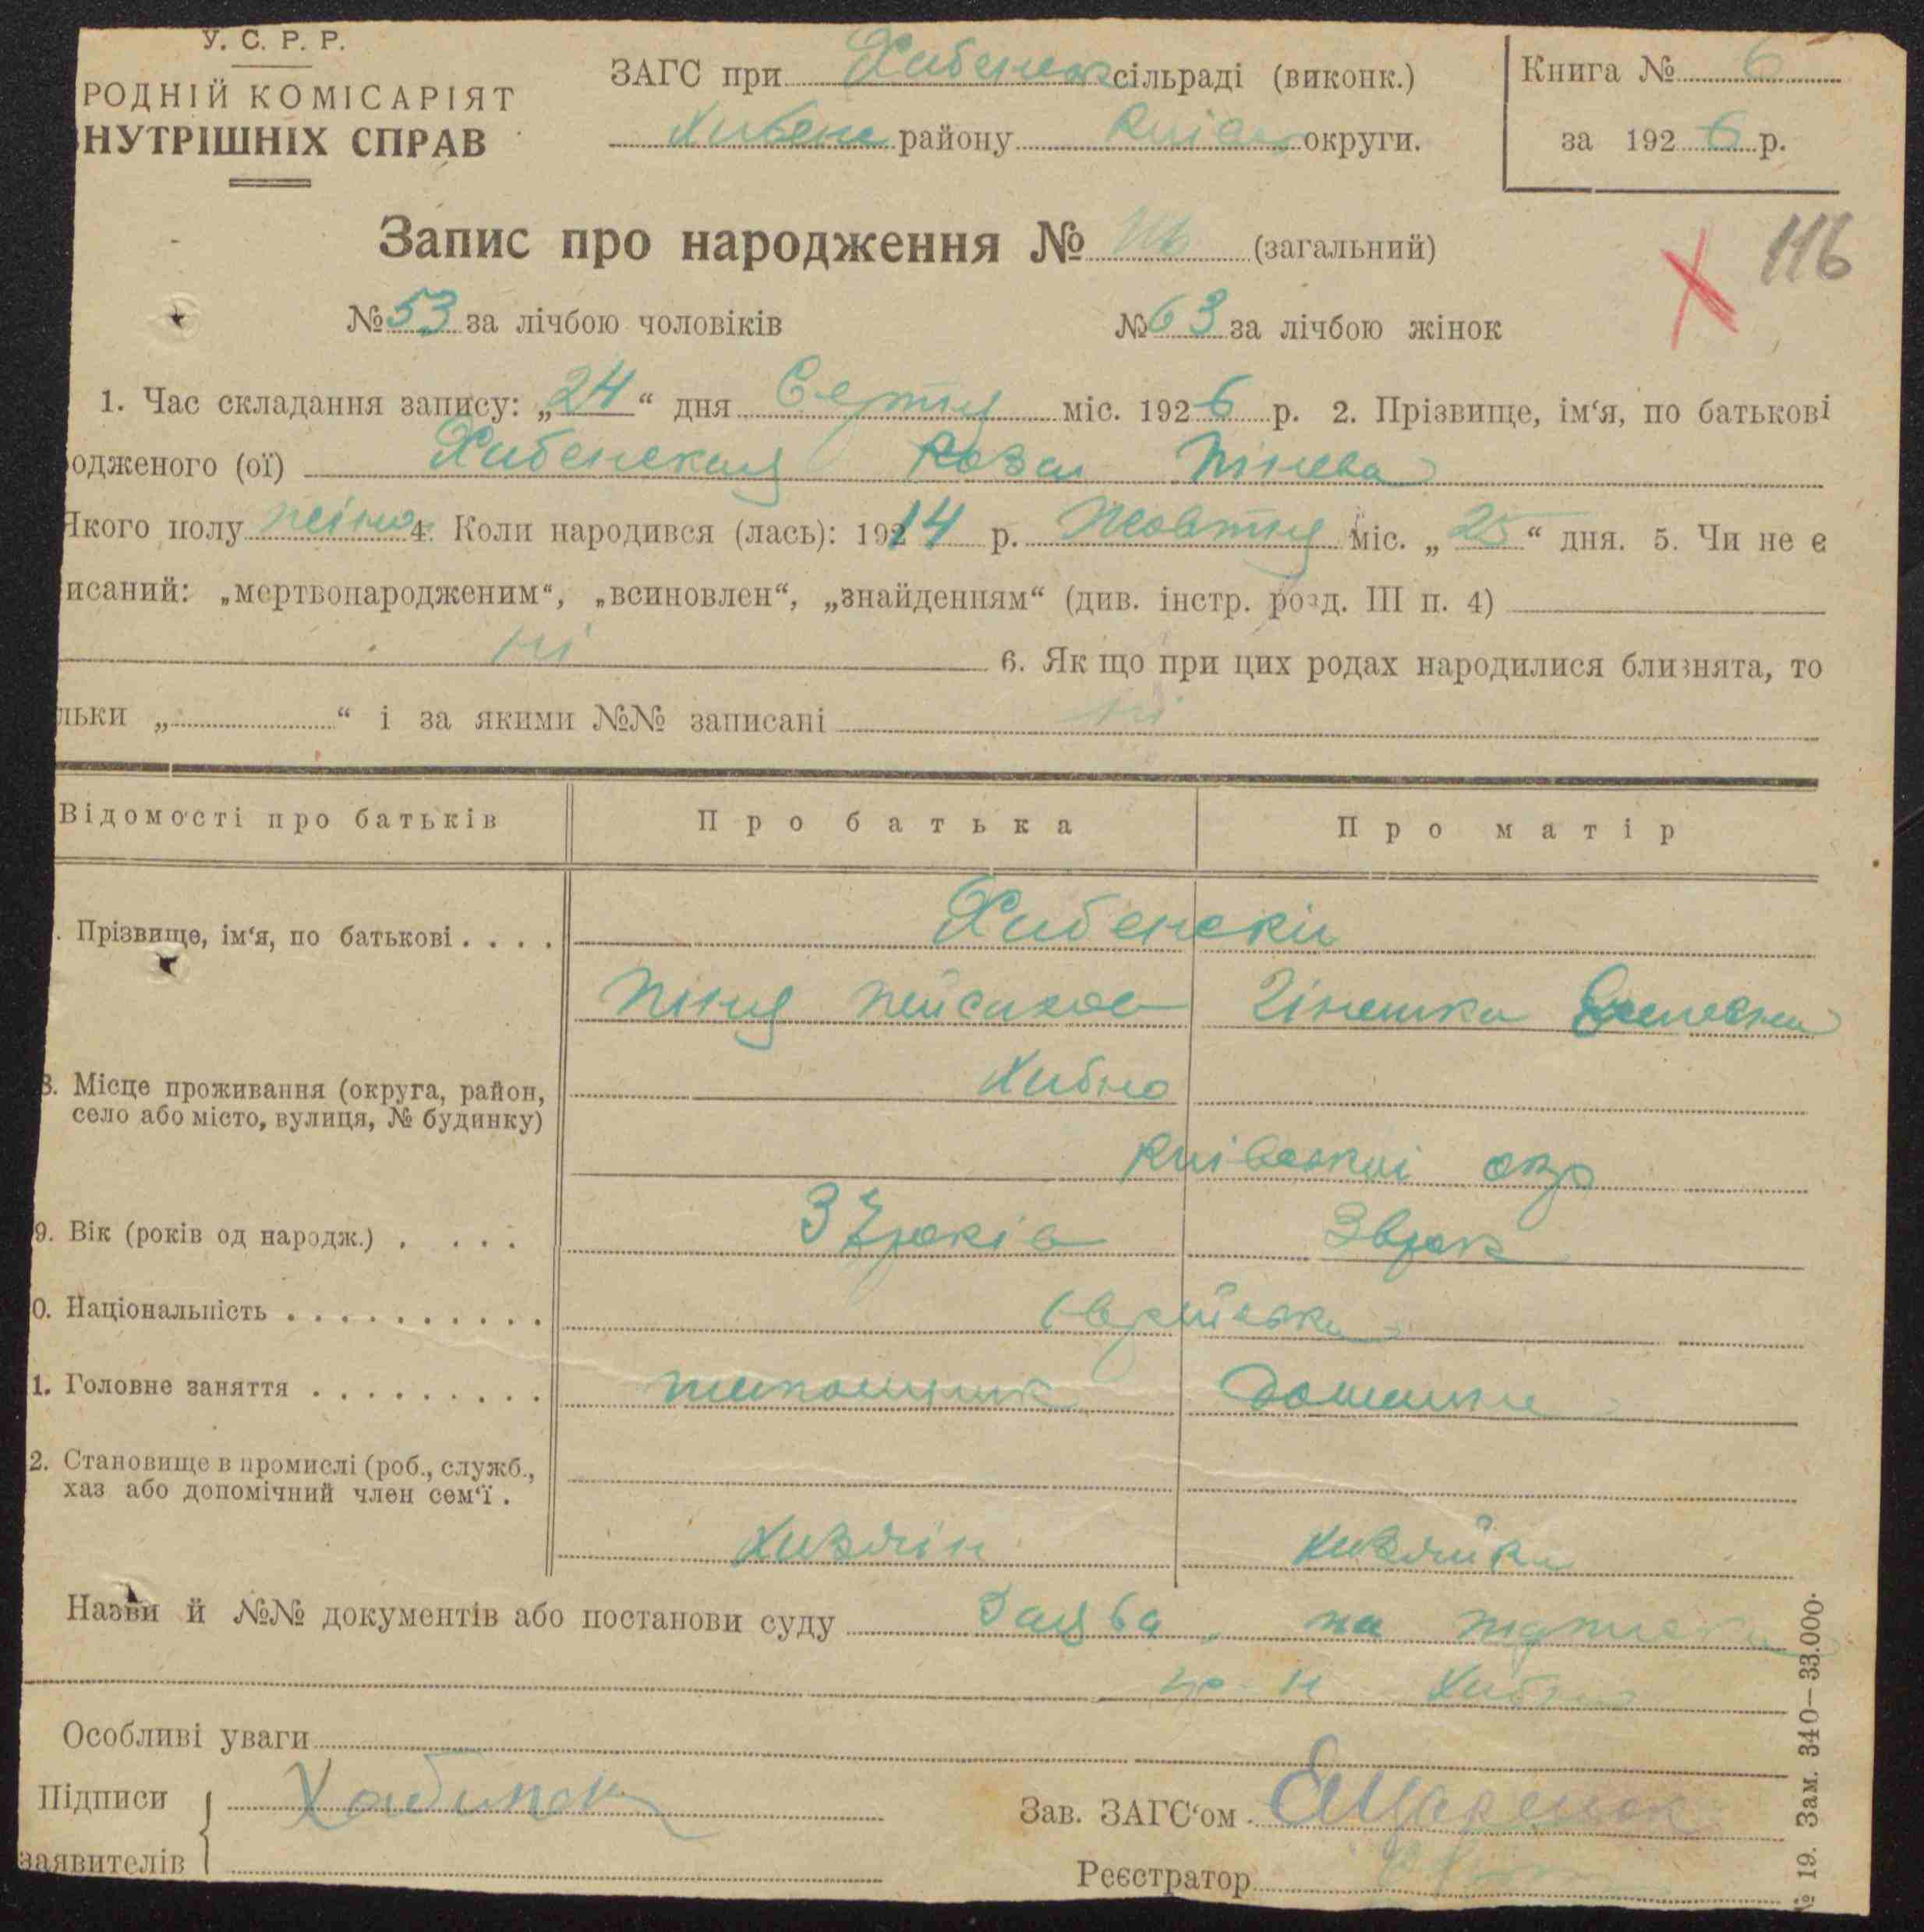 У. С. Р. Р.
РОДНІЙ КОМІСАРІЯТ
НУТРІШНІХ СПРАВ
ЗАГС при Хабенск сільраді (виконк.)
Хабенс району Київ округи.
Книга № 6
за 1926 р.
Запис про народження № 116 (загальний)
116
№ 53 за лічбою чоловіків № 63 за лічбою жінок
1. Час складання запису: „24“ дня Серпня міс. 1926 р. 2. Прізвище, ім‘я, по батькові
одженого (ої) Хабенская Роза Пінева
Якого полу жіно 4. Коли народився (лась): 1914 р. Жовтня міс. „25“ дня. 5. Чи не є
исаний: „мертвонародженим“, „всиновлен“, „знайденням“ (див. інстр. розд. III п. 4)
ні 6. Як що при цих родах народилися близнята, то
льки „ “ і за якими №№ записані ні
Відомості про батьків Про батька Про матір
. Прізвище, ім‘я, по батькові . . . . Хабенски
Піня Пейсахов Гінешка
8. Місце проживання (округа, район, Хабно
село або місто, вулиця, № будинку)
Київскиі окр
9. Вік (років од народж.) . . . . 37 років 36 рок
0. Національність . . . . . . . . . . Єврейська
1. Головне заняття . . . . . . . . . шапошник домашне
2. Становище в промислі (роб., служб.,
хаз або допомічний член сем‘ї .
Хазяін Хазяйка
Назви й №№ документів або постанови суду Заява на
Хабно
Особливі уваги
Підписи
заявителів
Зав. ЗАГС‘ом
Реєстратор
№ 19. Зам. 340—33.000.